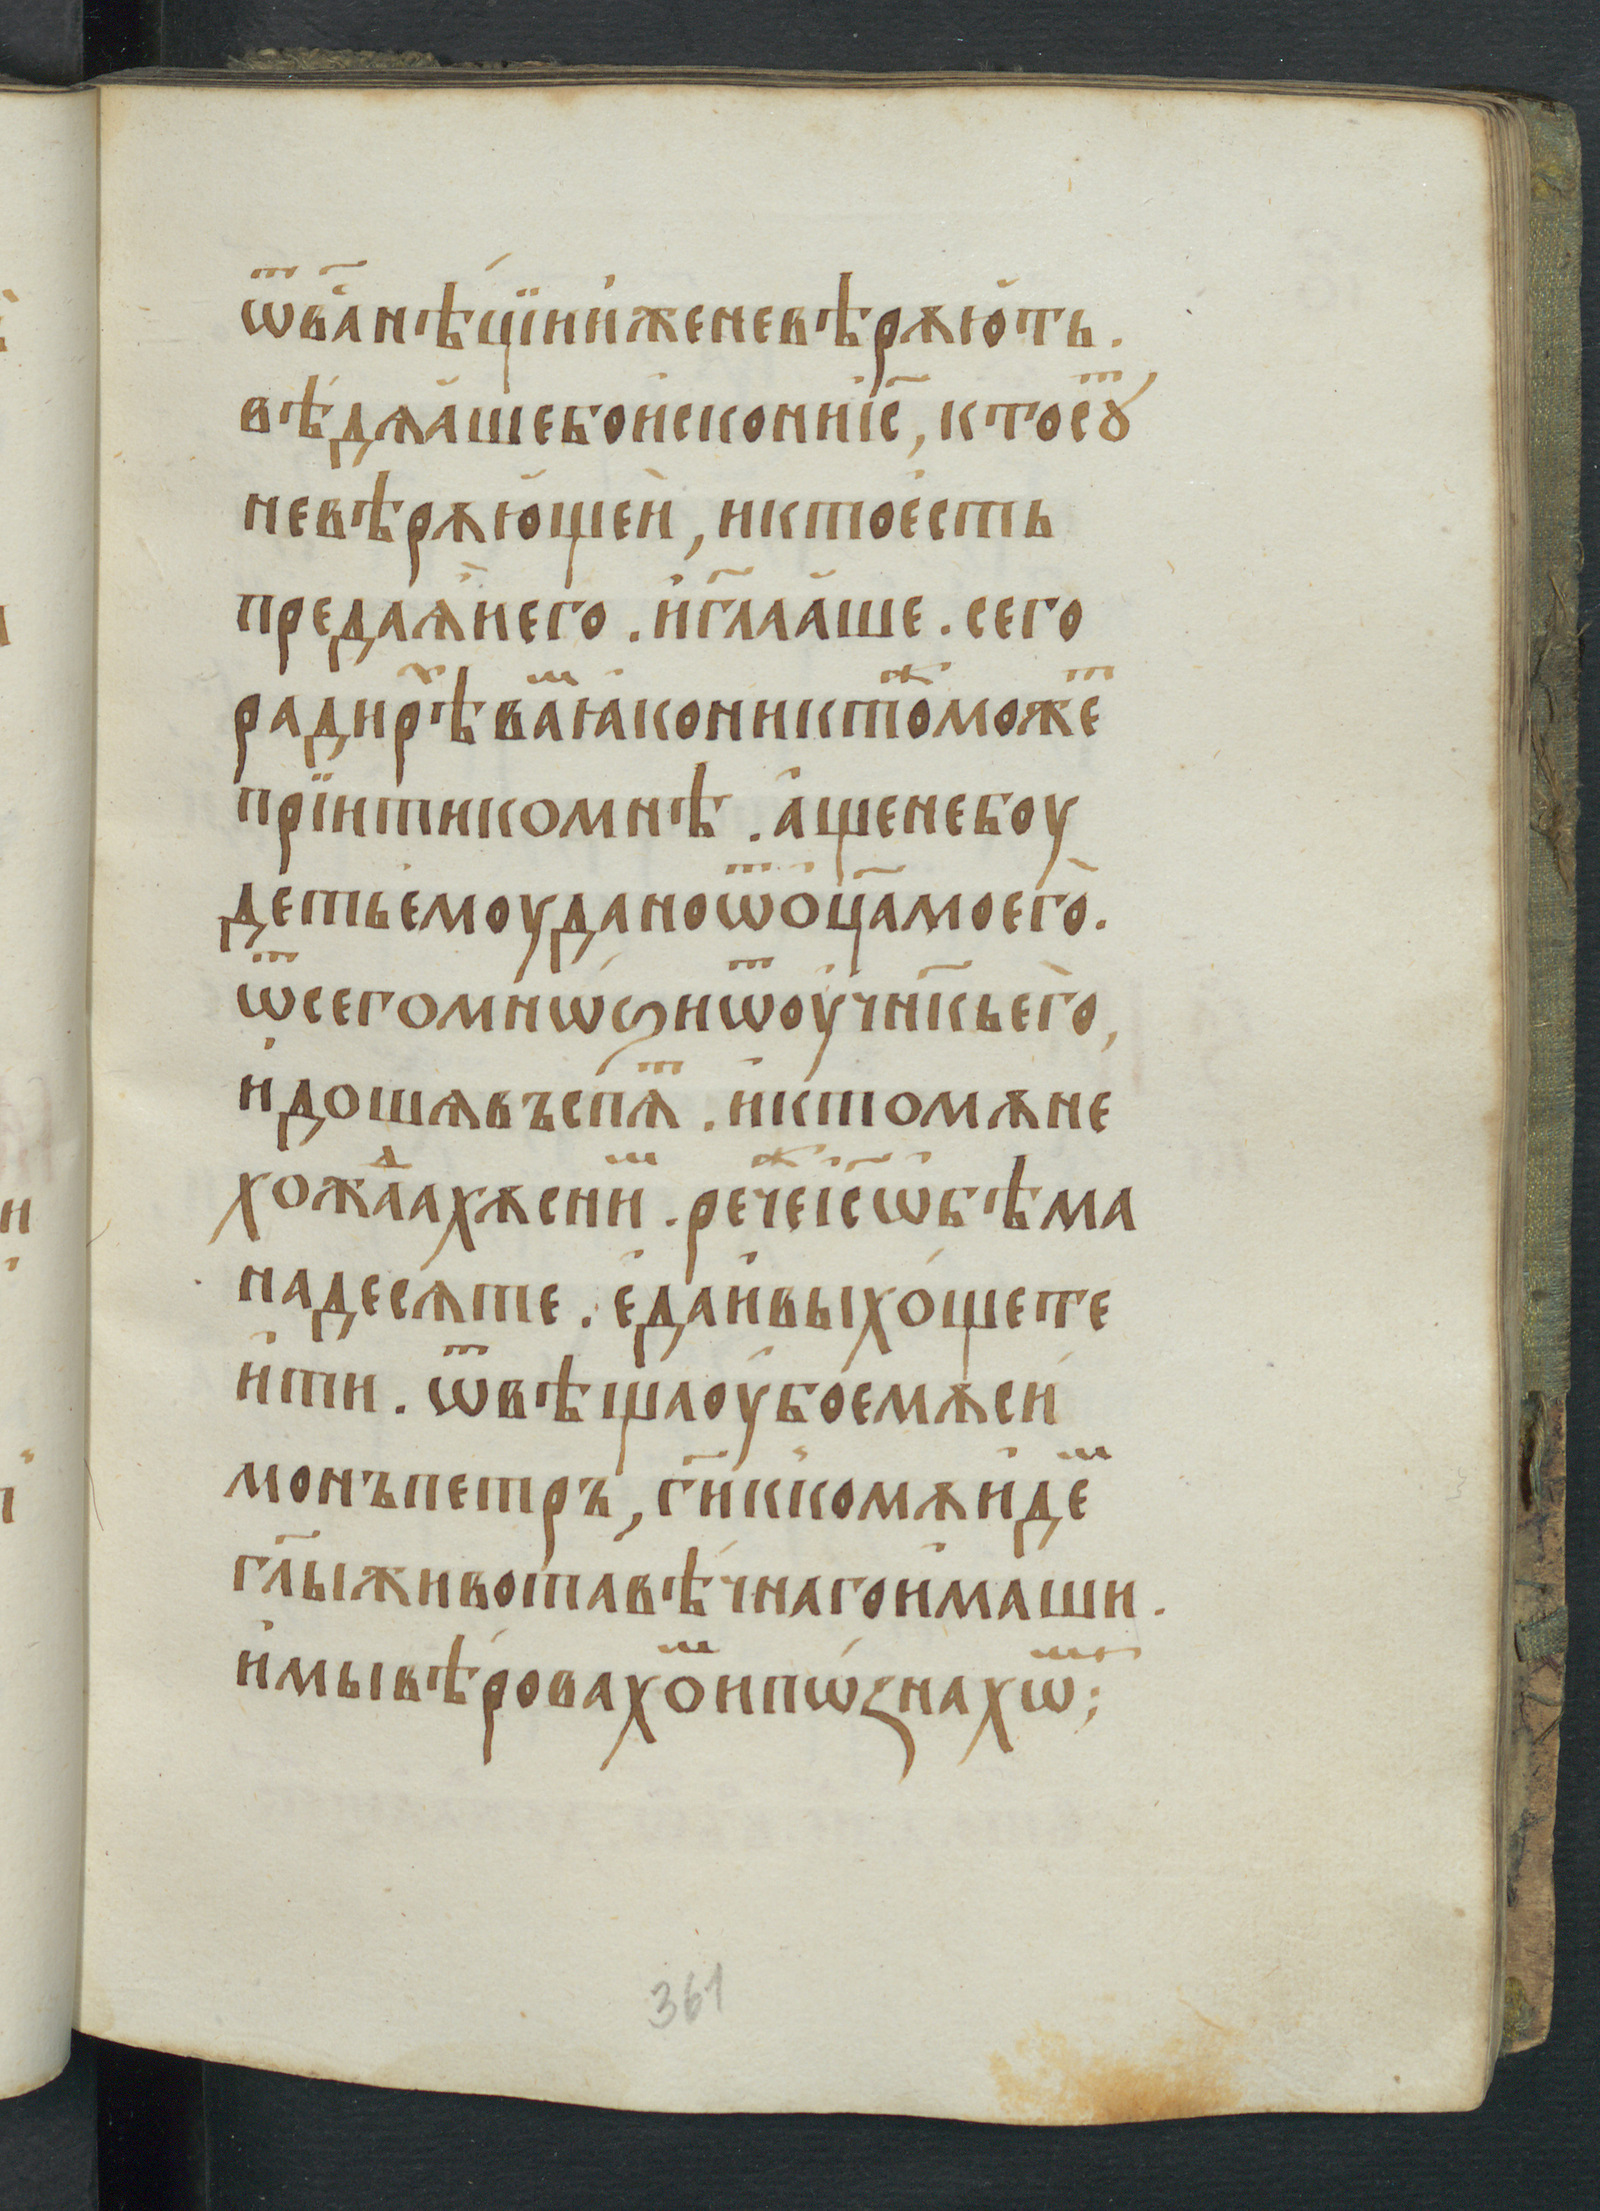 ѿва́нѣ́цїииженевѣрѧю҆ть.
вѣ́дѧа҆шебои҆сконнїс҃, ктосꙋ́ⷮ
невѣрѧю҆щеи, иктое҆сть
предаѧ҆и҆его. и҆г҃лаа҆ше. сего
радирⷯѣваⷨꙗ҆коникто́ⷤможеⷮ
прїитикомнѣ. а҆щенебоу
детьемоуданоѿѻ҆ц҃амоего̀.
ѿсегомнѡ́ѕиѿоу҆чн҃кьего̀,
и҆дошѧвъспѧⷮ. и҆ктомѧне
хожⷣаахѧсниⷨ. речеⷤі҆с҃ѡ҆бѣма
надесѧте. е҆даи҆выхо́щете
и҆ти. ѿвѣщаоу҆боемѧси́
монъпетръ, г҃иккомѧи҆деⷨ
гл҃ыживотавѣ́чнагои҆маши.
и҆мывѣ́ровахоⷨипѡ́ꙁнахѡⷨ;
361